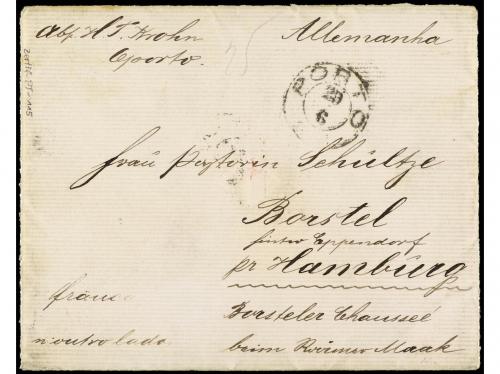 Abs. H. T. Krohn
Oporto.
Allemanha
PORTO
29
6
Frau Pastorin Schültze
Borstel
hinter Eppendorf
pr Hamburg
Borsteler Chausseé
beim Maak
franco
n'outro lado